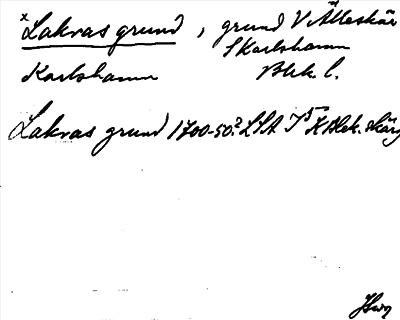 x Lakvas grund, grund V Ätteskär
S Karlshamn
Karlshamn Blek. l.
Lakvas grund 1700-50? LSA I 5 K Blek. skärg